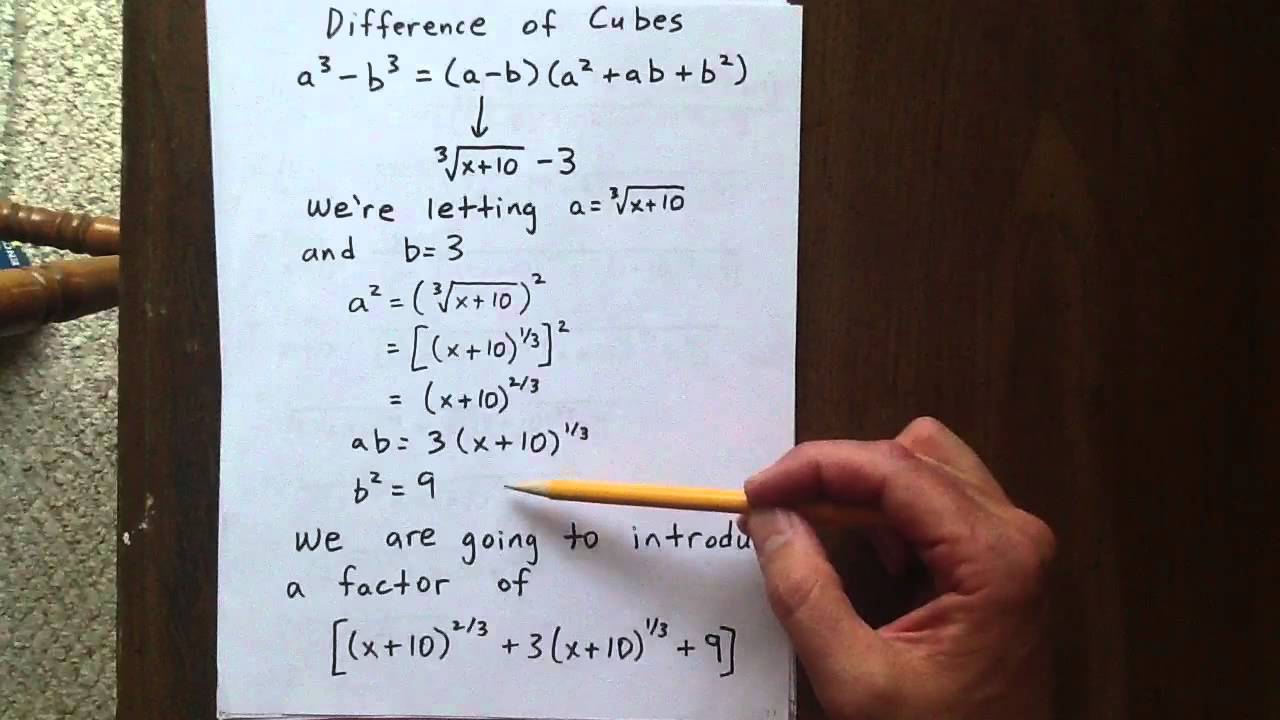 Difference of Cubes
a³ - b³ = (a-b)(a² + ab + b²)
↓
∛(x+10) - 3
We're letting a = ∛(x+10)
and b = 3
a² = (∛(x+10))²
= [(x+10)^1/3]²
= (x+10)^2/3
ab = 3(x+10)^1/3
b² = 9
We are going to introdu
a factor of
[(x+10)^2/3 + 3(x+10)^1/3 + 9]